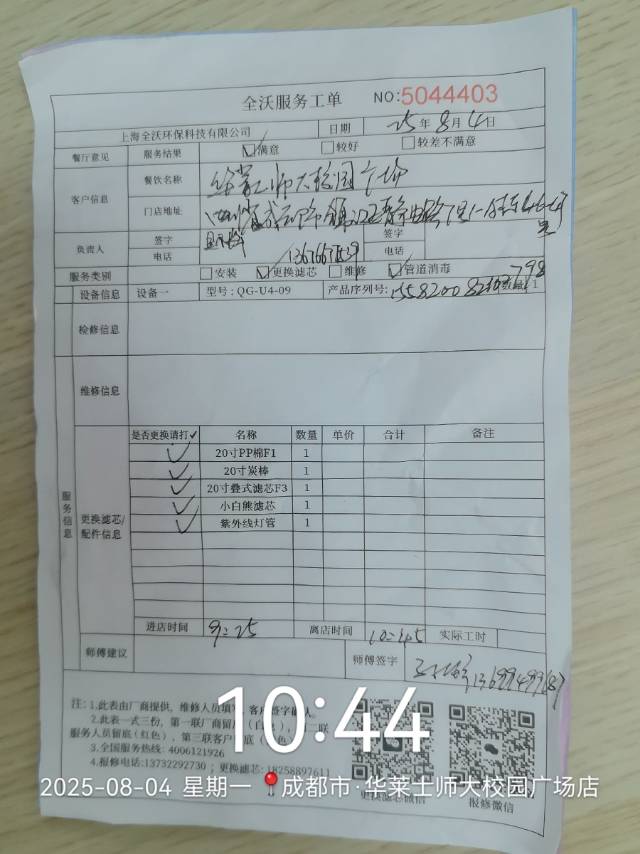 全沃服务工单 NO:5044403
上海全沃环保科技有限公司 日期 25年8月4日
餐厅意见 服务结果 ☑满意 □较好 □较差不满意
客户信息 餐饮名称 师大校园广场
门店地址 四川省成都市
负责人 签字 签字
电话 电话
服务类别 □安装 ☑更换滤芯 □维修 ☑管道消毒
设备信息 设备一 型号:QG-U4-09 产品序列号: 数量 1
检修信息
维修信息
服务信息
更换滤芯/配件信息
是否更换请打✓ 名称 数量 单价 合计 备注
✓ 20寸PP棉F1 1
✓ 20寸炭棒 1
✓ 20寸叠式滤芯F3 1
✓ 小白熊滤芯 1
✓ 紫外线灯管 1
进店时间 9:25 离店时间 10:45 实际工时
师傅建议 师傅签字
注:1.此表由厂商提供,维修人员填写,客户签字确认。
2.此表一式三份,第一联厂商留底(白色),第二联
服务人员留底(红色),第三联客户留底
3.全国服务热线:4006121926
4.报修电话:13732292730;更换滤芯:18258897611
更换滤芯微信 报修微信
10:44
2025-08-04 星期一 成都市·华莱士师大校园广场店